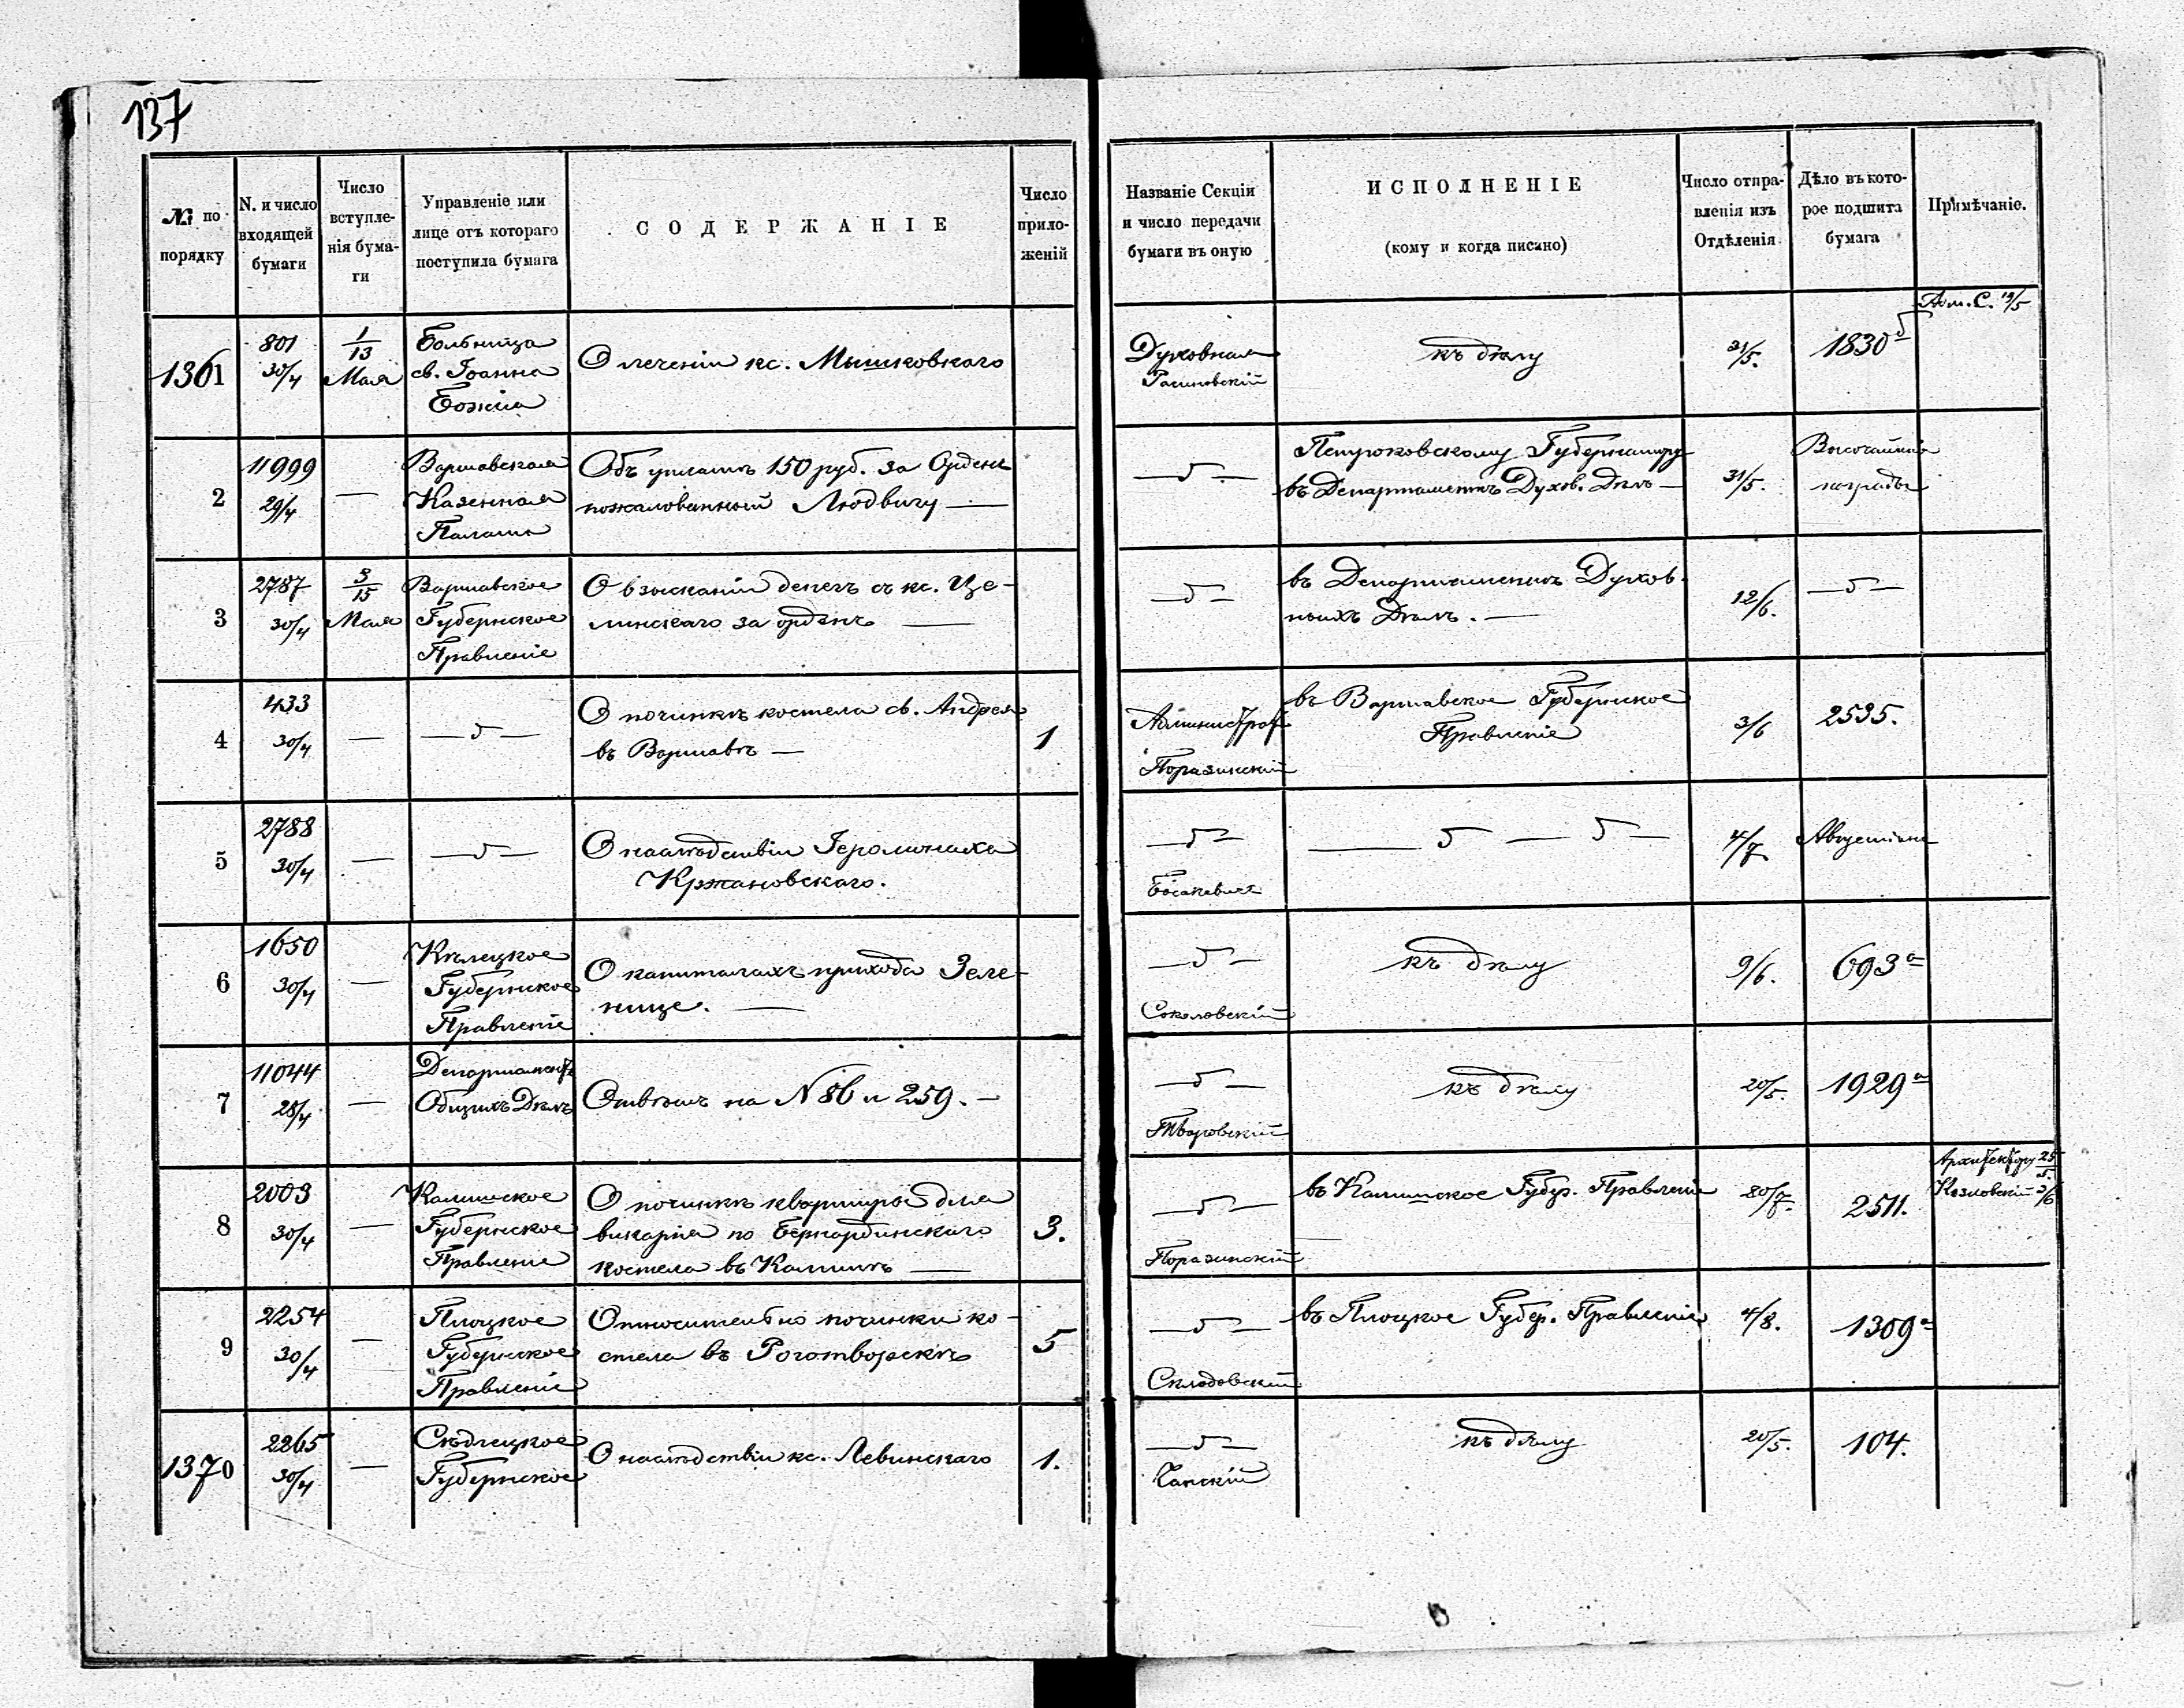 137
№ по порядку
N. и число входящей бумаги
Число вступленія бумаги
Управленіе или лице отъ котораго поступила бумага
СОДЕРЖАНІЕ
Число приложеній
Названіе Секціи и число передачи бумаги въ оную
ИСПОЛНЕНІЕ
(кому и когда писано)
Число отправленія изъ Отдѣленія
Дѣло въ которое подшита бумага
Примѣчаніе.
1361
801
30/4
1/13
Мая
Больница
св. Іоанна
Божія
О леченіи кс. Мышковскаго
Духовная
къ дѣлу
31/5.
1830
19/5
2
11999
29/4
—
Варшавская
Казенная
Палата
Объ уплатѣ 150 руб. за Орденъ
пожалованный Людвигу —
Петроковскому Губернатору
въ Департаментъ Духов. Дѣлъ —
31/5.
Высочайшія
награды
3
2787
30/4
3/15
Мая
Варшавское
Губернское
Правленіе
О взысканіи денегъ съ кс. Це-
линскаго за орденъ —
въ Департаментъ Духов-
ныхъ Дѣлъ. —
12/6.
4
433
30/4
—
О починкѣ костела св. Андрея
въ Варшавѣ —
1
Администрат
Поразинскій
въ Варшавское Губернское
Правленіе
3/6
2535.
5
2788
30/4
—
О наслѣдствіи Іеромонаха
Кржановскаго.
4/7
6
1650
30/4
—
Кѣлецкое
Губернское
Правленіе
О капиталахъ прихода Зеле-
нице. —
Соколовскій
къ дѣлу
9/6.
693а
7
11044
28/4
—
Департаментъ
Общихъ Дѣлъ
Отвѣтъ на N 86 и 259. —
къ дѣлу
20/5.
1929а
8
2003
30/4
—
Калишское
Губернское
Правленіе
О починкѣ квартиры для
викарія по Бернардинскаго
костела въ Калишѣ —
3.
Поразинскій
въ Калишское Губер. Правленіе
2511.
Архитектору 25/5
Козловскій 3/6
9
2254
30/4
—
Плоцкое
Губернское
Правленіе
Относительно починки ко-
стела въ Роготворскѣ
5
Склодовскій
въ Плоцкое Губер. Правленіе
4/8.
1309а
1370
2265
30/4
—
Сѣдлецкое
Губернское
О наслѣдствіи кс. Левинскаго
1.
Чапскій
къ дѣлу
20/5.
104.